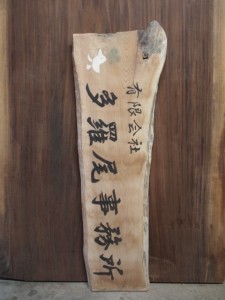 有限会社
多羅尾事務所